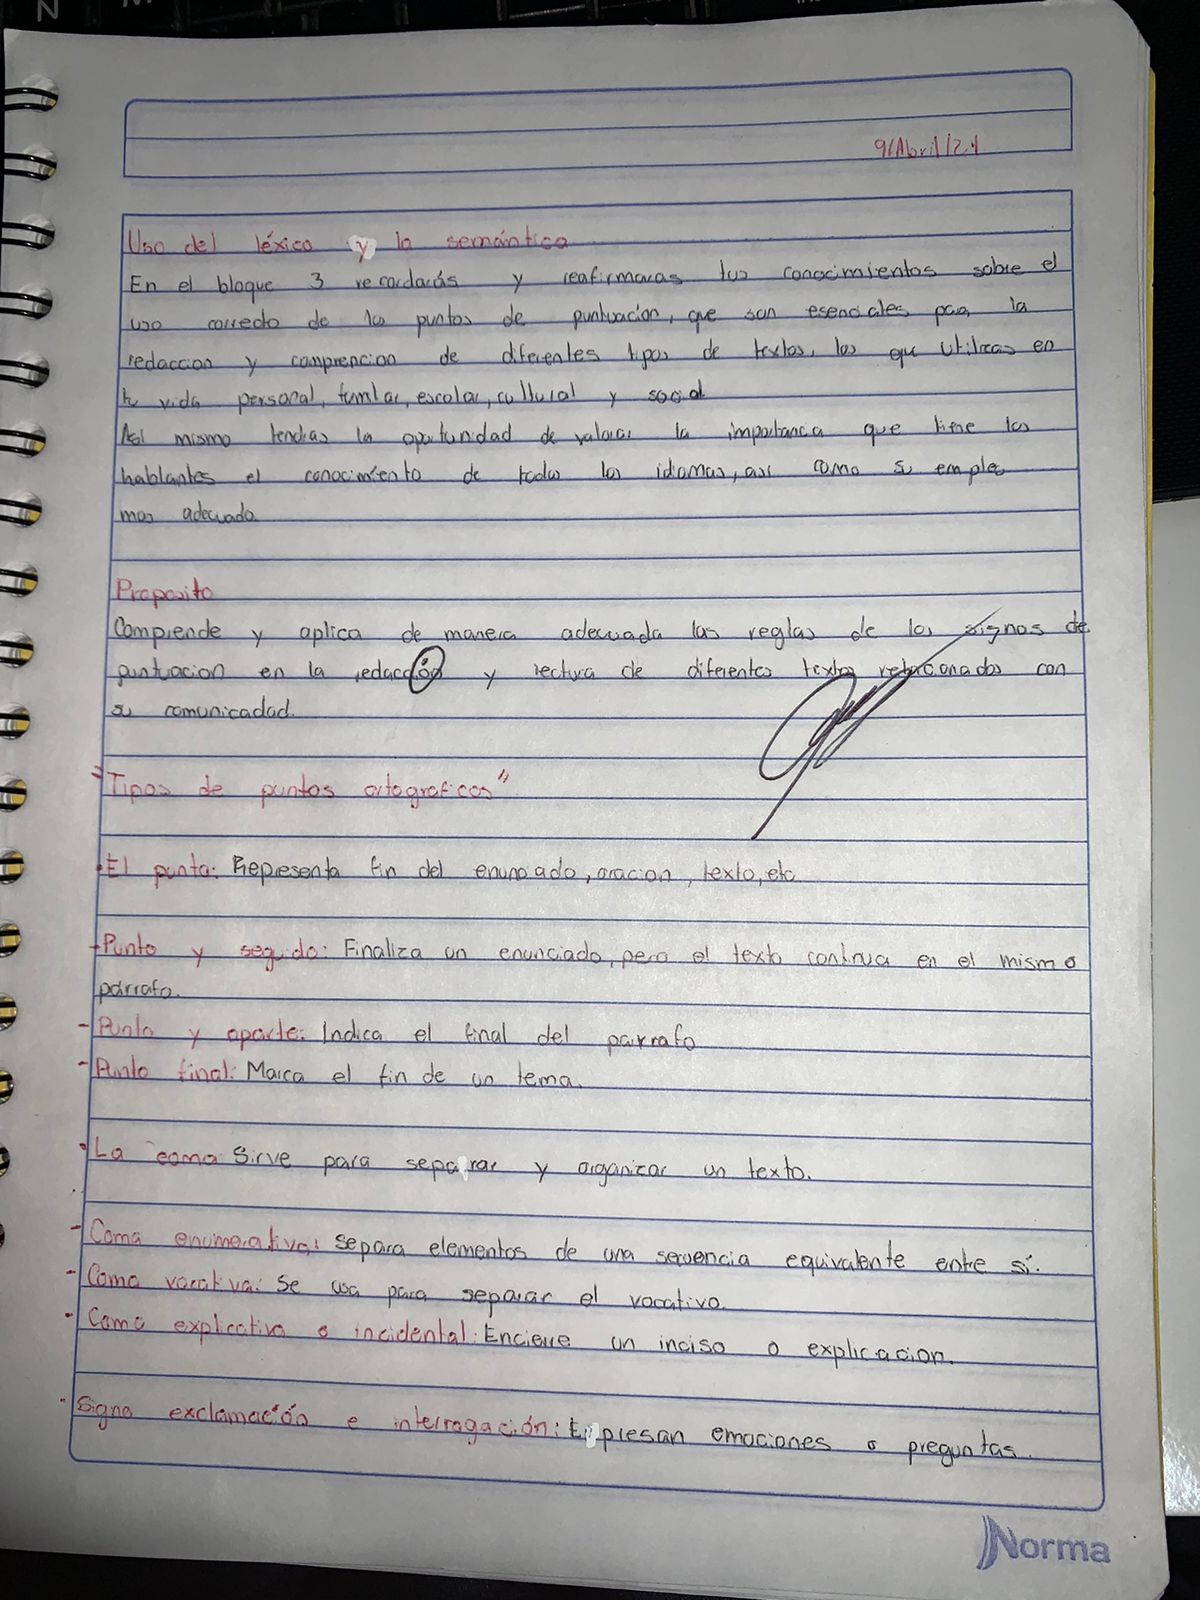 9/Abril/24
Uso del léxico y la semántica
En el bloque 3 recordarás y reafirmaras tus conocimientos sobre el
uso correcto de los puntos de puntuación, que son esenciales para la
redaccion y comprencion de diferentes tipos de textos, los que utilizas en
tu vida personal, familar, escolar, cultural y social
Asi mismo tendras la oportunidad de valorar la importanca que tiene los
hablantes el conocimiento de todos los idiomas, asi como su empleo
mas adecuado.
Proposito
Comprende y aplica de manera adecuada las reglas de los signos de
puntuacion en la redacción y lectura de diferentes textos relacionados con
su comunicadad.
"Tipos de puntos ortograficos"
•El punto: Representa fin del enunciado, oracion, texto, etc
-Punto y seguido: Finaliza un enunciado, pero el texto continua en el mismo
párrafo.
-Punto y aparte: Indica el final del parrafo
-Punto final: Marca el fin de un tema.
•La coma Sirve para separar y organizar un texto.
-Coma enumerativa: separa elementos de una secuencia equivalente entre sí.
-Coma vocativa: Se usa para separar el vocativo.
-Coma explicativa o incidental: Encierre un inciso o explicacion.
•Signo exclamación e interrogación: Expresan emociones o preguntas.
Norma